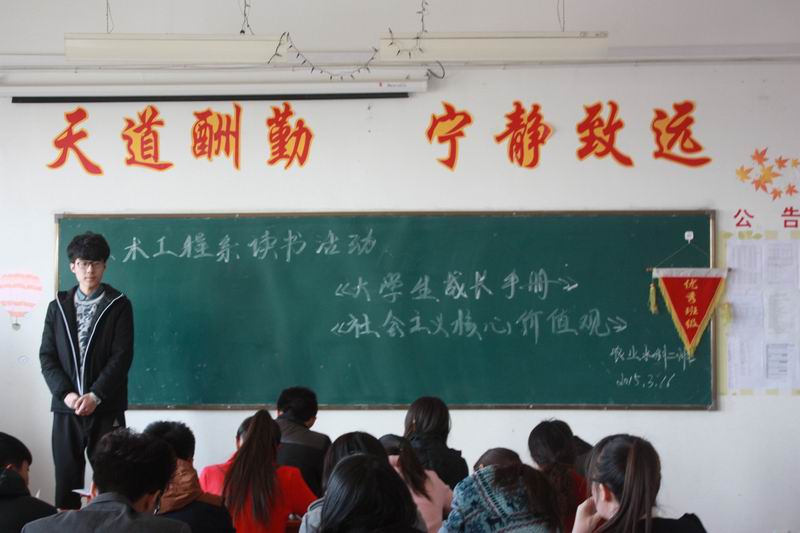 天道酬勤 宁静致远
木工程系：读书活动
《大学生成长手册》
《社会主义核心价值观》
2015.3.16
优秀班级
公告